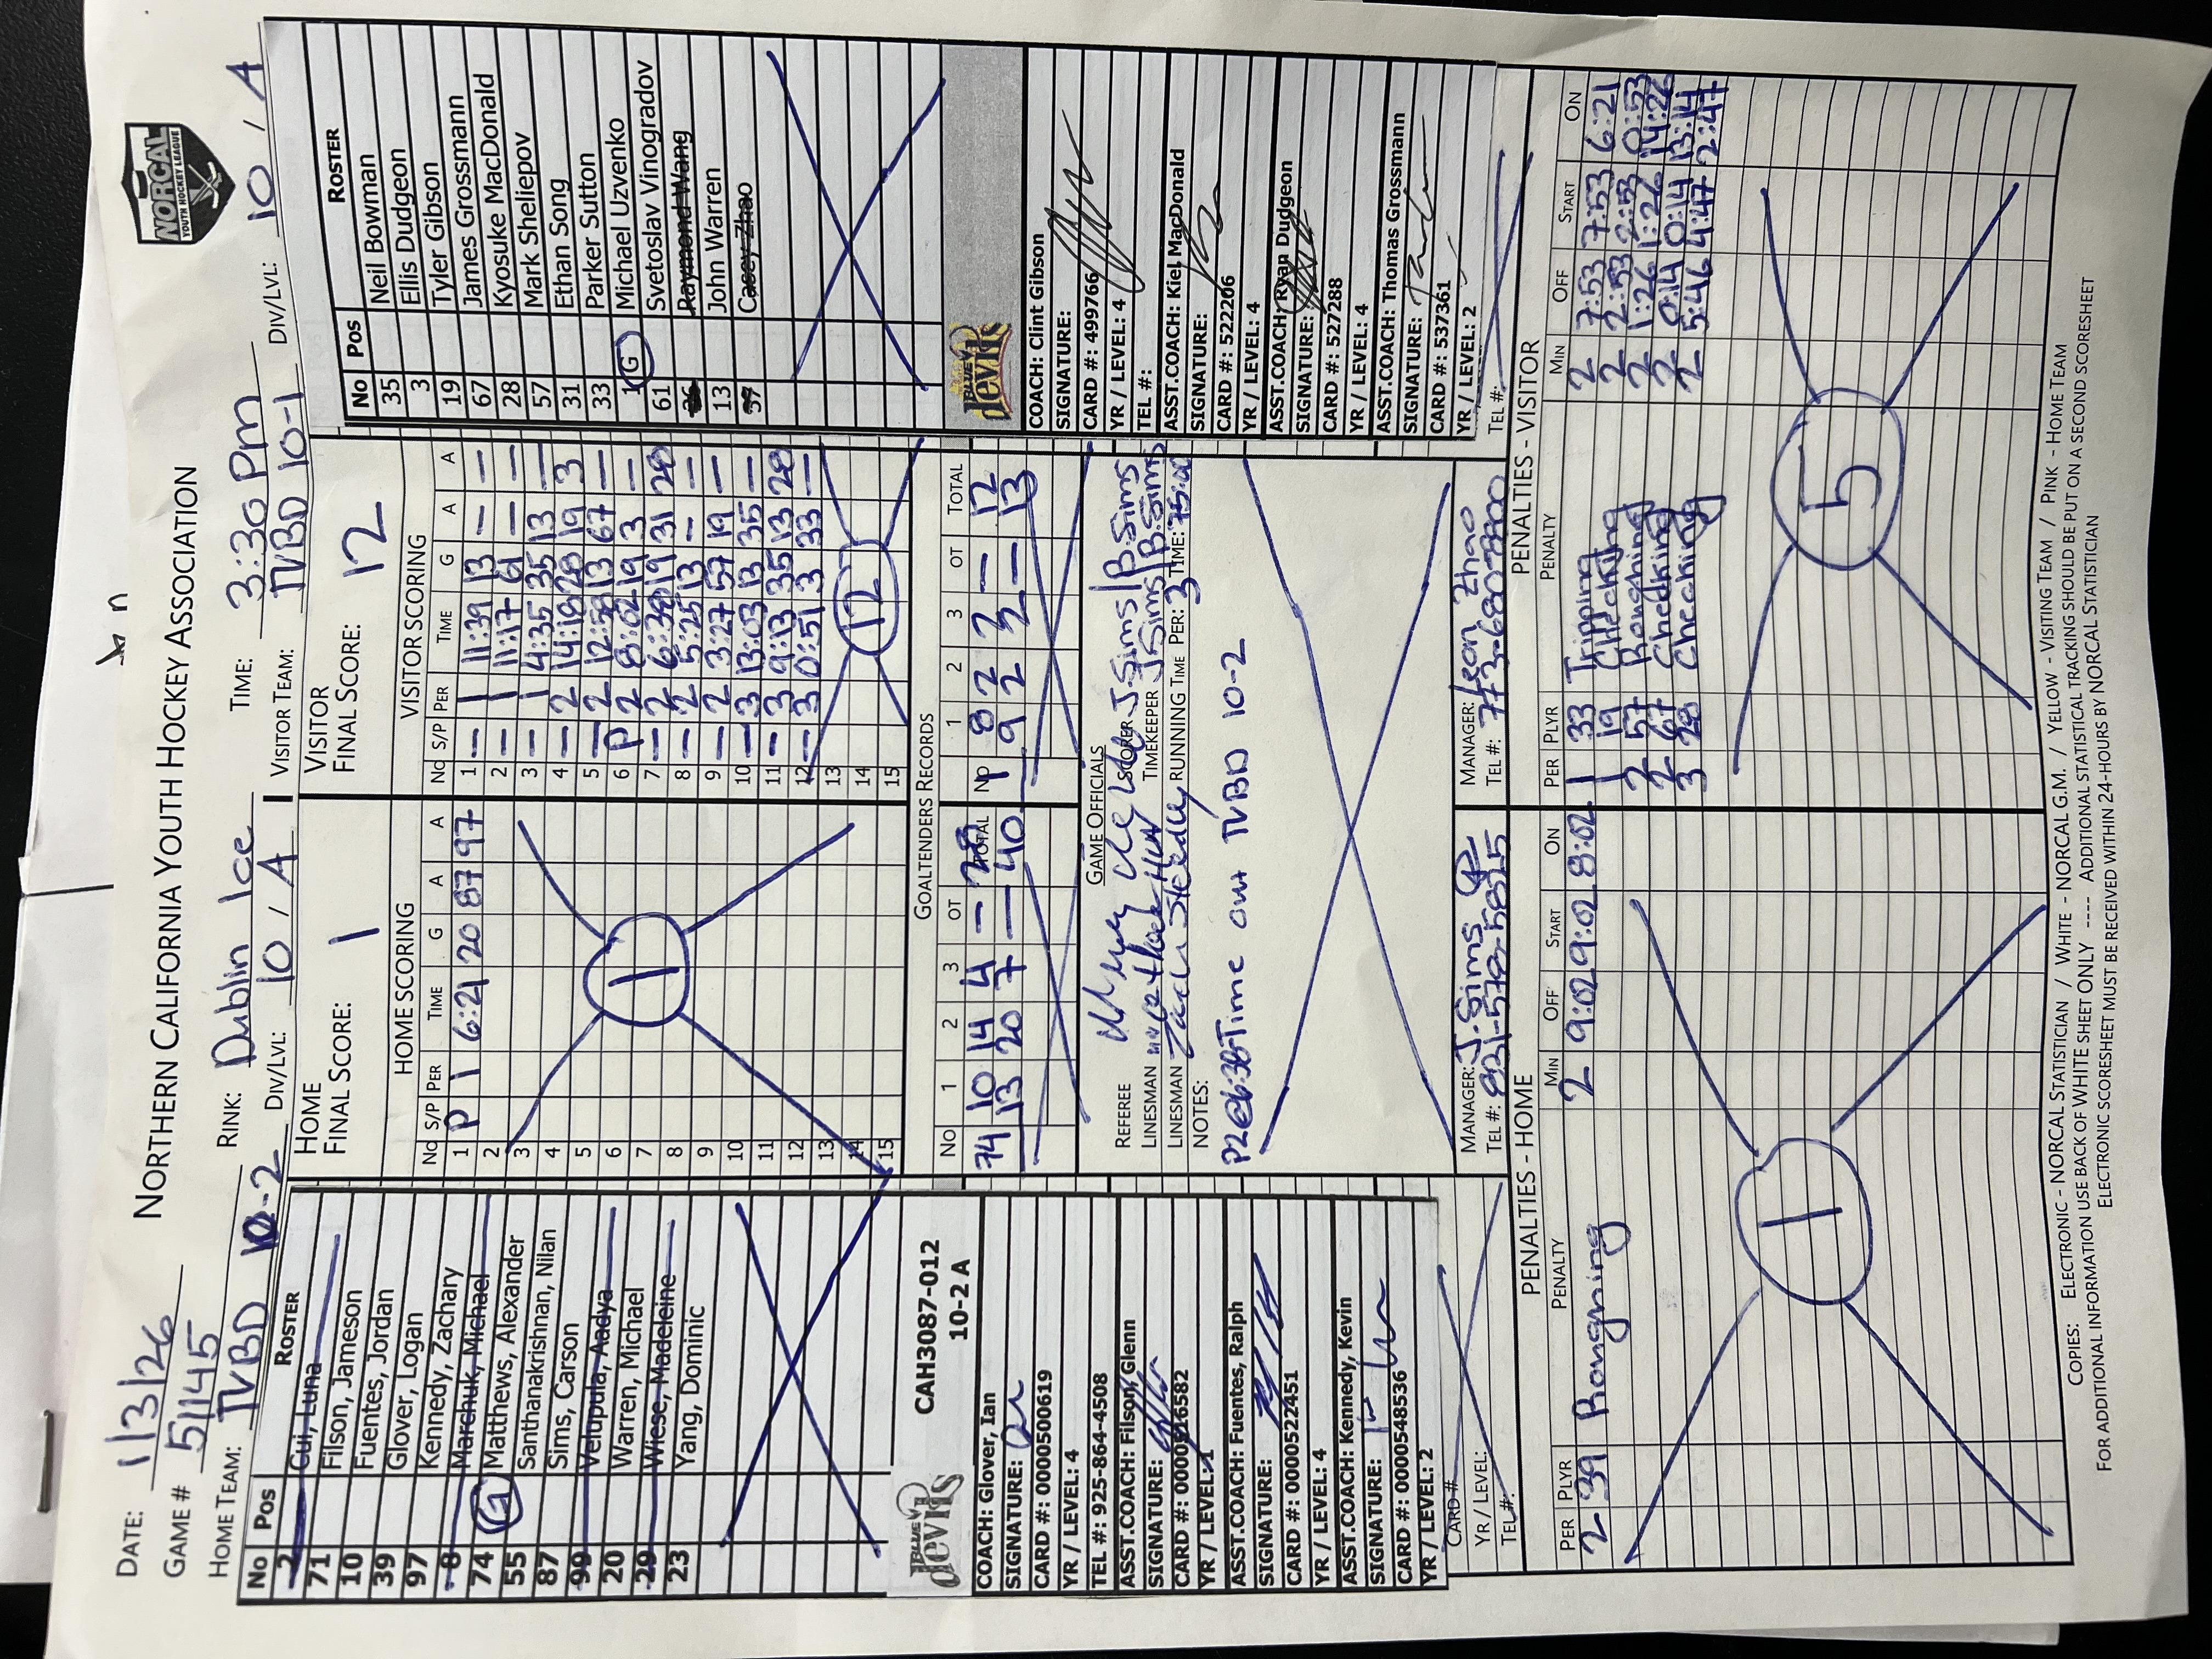 NORTHERN CALIFORNIA YOUTH HOCKEY ASSOCIATION
NORCAL
YOUTH HOCKEY LEAGUE
DATE: 1/3/26
GAME # 51145 RINK: Dublin Ice TIME: 3:30 Pm
HOME TEAM: TVBD 10-2 DIV/LVL: 10 / A VISITOR TEAM: TVBD 10-1 DIV/LVL: 10 / A
No Pos ROSTER
2 Cui, Luna
71 Filson, Jameson
10 Fuentes, Jordan
39 Glover, Logan
97 Kennedy, Zachary
8 Marchuk, Michael
74 G Matthews, Alexander
55 Santhanakrishnan, Nilan
87 Sims, Carson
99 Velupula, Aadya
20 Warren, Michael
29 Wiese, Madeleine
23 Yang, Dominic
BLUE devils
CAH3087-012
10-2 A
COACH: Glover, Ian
SIGNATURE:
CARD #: 0000500619
YR / LEVEL: 4
TEL #: 925-864-4508
ASST.COACH: Filson, Glenn
SIGNATURE:
CARD #: 0000516582
YR / LEVEL: 1
ASST.COACH: Fuentes, Ralph
SIGNATURE:
CARD #: 0000522451
YR / LEVEL: 4
ASST.COACH: Kennedy, Kevin
SIGNATURE:
CARD #: 0000548536
YR / LEVEL: 2
CARD #
YR / LEVEL:
TEL #:
HOME
FINAL SCORE: 1
HOME SCORING
No S/P PER TIME G A A
1 P 1 6:21 20 87 97
2
3
4
5
6
7
8
9
10
11
12
13
14
15
1
VISITOR
FINAL SCORE: 12
VISITOR SCORING
No S/P PER TIME G A A
1 — 1 11:39 13 — —
2 — 1 11:17 61 — —
3 — 1 4:35 35 13 —
4 — 2 14:18 28 19 3
5 — 2 12:58 13 67 —
6 P 2 8:02 19 3 —
7 — 2 6:38 19 31 28
8 — 2 5:25 13 — —
9 — 2 3:27 57 19 —
10 — 3 13:03 13 35 —
11 — 3 9:13 35 13 28
12 — 3 0:51 3 33 —
13
14
15
12
GOALTENDERS RECORDS
No 1 2 3 OT TOTAL
74 10 14 4 — 28
13 20 7 — 40
No 1 2 3 OT TOTAL
1 8 2 2 — 12
9 2 2 — 13
GAME OFFICIALS
REFEREE SCORER J Sims / B. Sims
LINESMAN TIMEKEEPER J Sims / B. Sims
LINESMAN RUNNING TIME PER: 3 TIME: 15:00
NOTES:
P2@6:38 Time out TVBD 10-2
MANAGER: J. Sims
TEL #: 831-578-5825
MANAGER: Leon Zhao
TEL #: 773-6807800
No Pos ROSTER
35 Neil Bowman
3 Ellis Dudgeon
19 Tyler Gibson
67 James Grossmann
28 Kyosuke MacDonald
57 Mark Sheliepov
31 Ethan Song
33 Parker Sutton
1 G Michael Uzvenko
61 Svetoslav Vinogradov
26 Raymond Wang
13 John Warren
37 Casey Zhao
BLUE devils
COACH: Clint Gibson
SIGNATURE:
CARD #: 499766
YR / LEVEL: 4
TEL #:
ASST.COACH: Kiel MacDonald
SIGNATURE:
CARD #: 522206
YR / LEVEL: 4
ASST.COACH: Ryan Dudgeon
SIGNATURE:
CARD #: 527288
YR / LEVEL: 4
ASST.COACH: Thomas Grossmann
SIGNATURE:
CARD #: 537361
YR / LEVEL: 2
TEL #:
PENALTIES - HOME
PER PLYR PENALTY MIN OFF START ON
2 39 Roughing 2 9:02 9:02 8:02
1
PENALTIES - VISITOR
PER PLYR PENALTY MIN OFF START ON
1 33 Tripping 2 7:53 7:53 6:21
1 19 Checking 2 2:53 2:53 0:53
2 57 Roughing 2 1:26 1:26 14:26
2 67 Checking 2 0:14 0:14 13:14
3 28 Checking 2 5:46 4:47 2:47
5
COPIES: ELECTRONIC - NORCAL STATISTICIAN / WHITE - NORCAL G.M. / YELLOW - VISITING TEAM / PINK - HOME TEAM
FOR ADDITIONAL INFORMATION USE BACK OF WHITE SHEET ONLY ---- ADDITIONAL STATISTICAL TRACKING SHOULD BE PUT ON A SECOND SCORESHEET
ELECTRONIC SCORESHEET MUST BE RECEIVED WITHIN 24-HOURS BY NORCAL STATISTICIAN